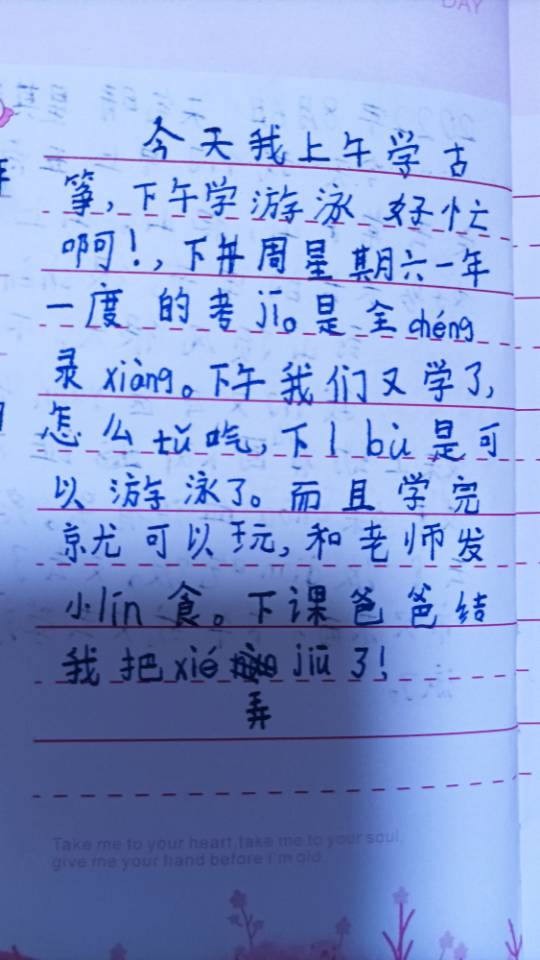 DAY
今天我上午学古
筝,下午学游泳 好忙
啊!,下井周星期六一年
一度的考jī。是全chéng
录xiàng。下午我们又学了,
怎么tǔ吃,下1bù是可
以游泳了。而且学完
就可以玩,和老师发
小lín食。下课爸爸结
我把xié jiū了!
弄
Take me to your heart,take me to your soul,
give me your hand before i'm old.